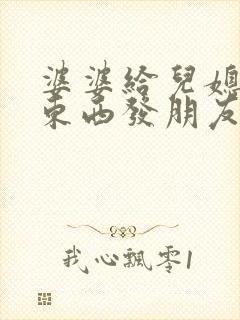 婆婆給兒媳
東西發朋友
我心飄零1